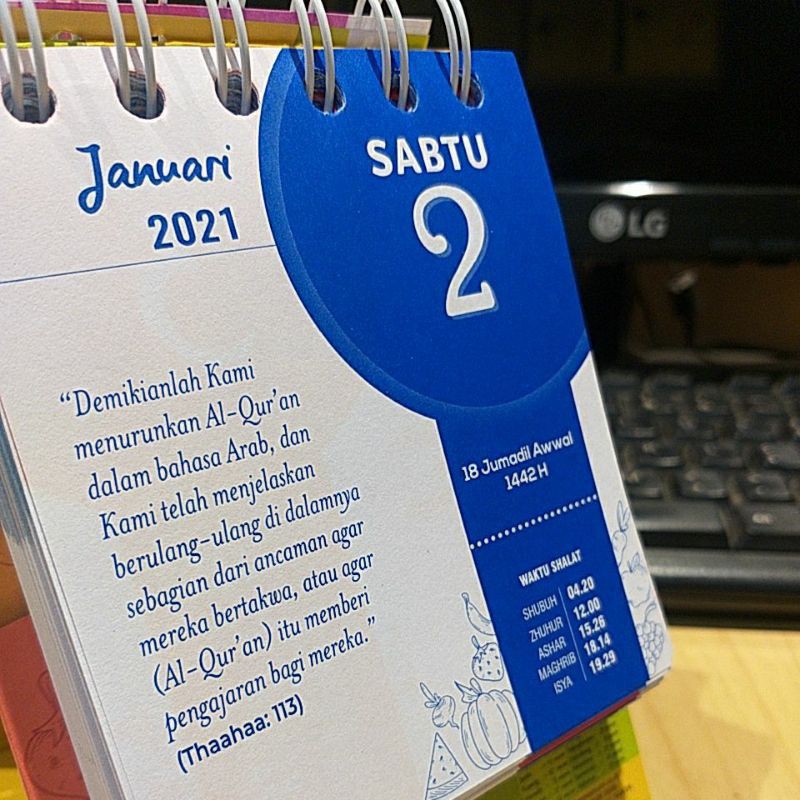 Januari
2021
SABTU
2
"Demikianlah Kami
menurunkan Al-Qur'an
dalam bahasa Arab, dan
Kami telah menjelaskan
berulang-ulang di dalamnya
sebagian dari ancaman agar
mereka bertakwa, atau agar
(Al-Qur'an) itu memberi
pengajaran bagi mereka."
(Thaahaa: 113)
18 Jumadil Awwal
1442 H
WAKTU SHALAT
SHUBUH 04.20
ZHUHUR 12.00
ASHAR 15.26
MAGHRIB 18.14
ISYA 19.29
LG